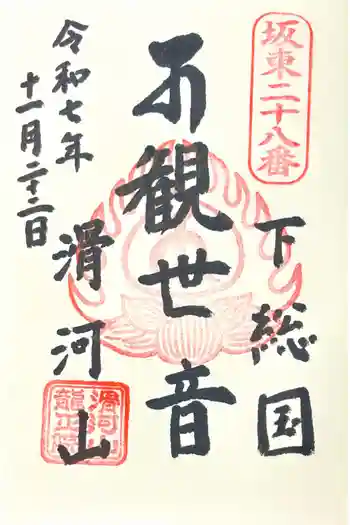 坂東二十八番
下総国
不観世音
令和七年
十一月二十二日
滑河山
滑河山
龍正院